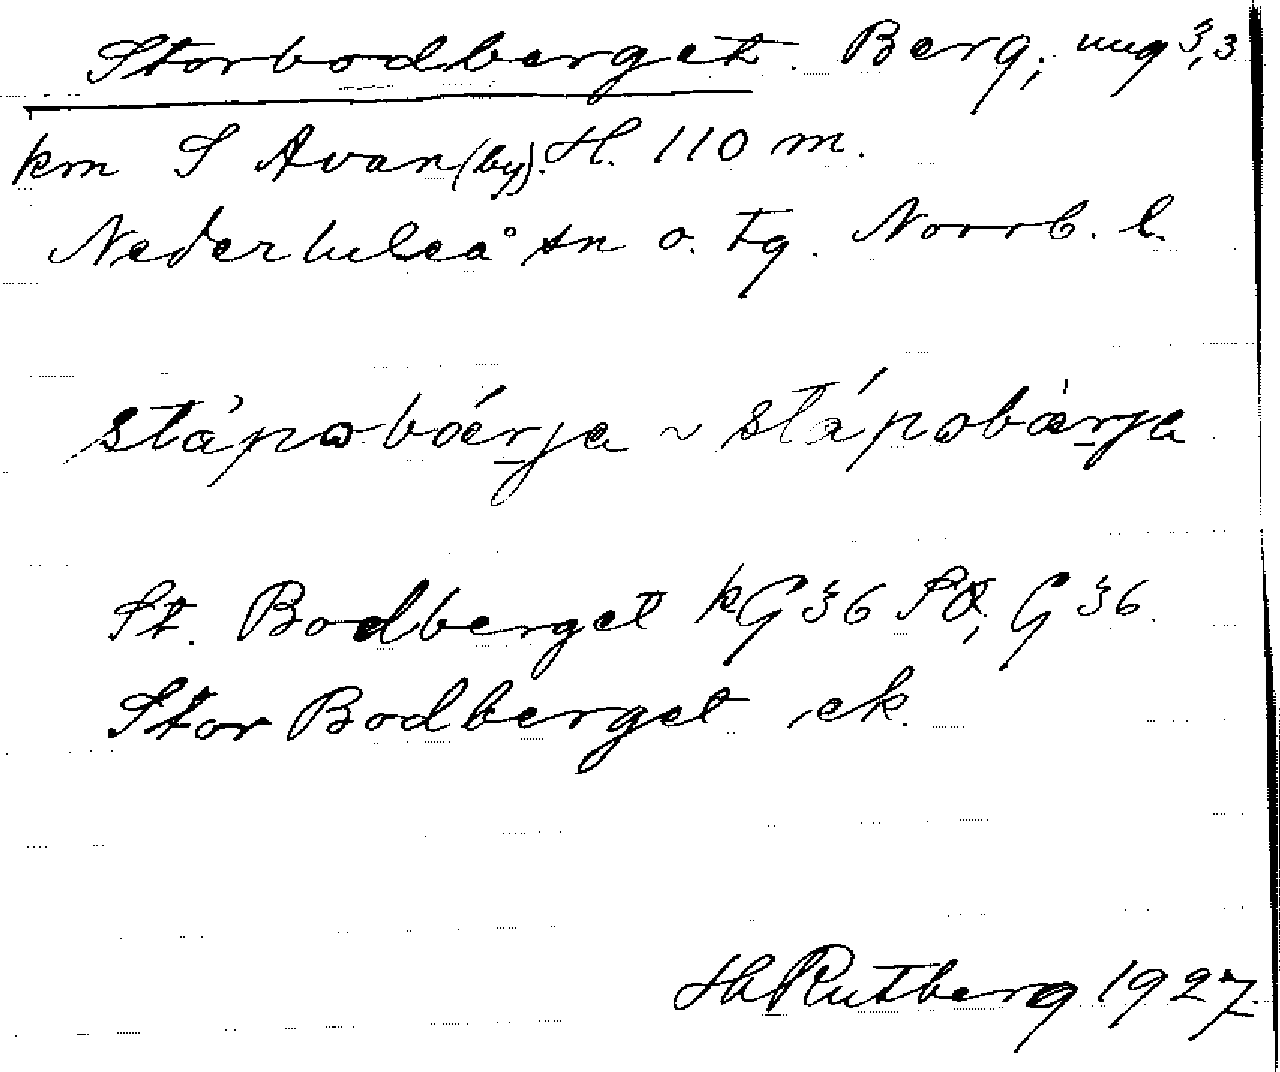 Storbodberget. Berg, ung 3,3
km S Avan (by). H. 110 m.
Nederluleå sn o. tg. Norrb. l.
St. Bodberget kG 36 SO, G 36.
Stor Bodberget ek.
Hh Rutberg 1927.